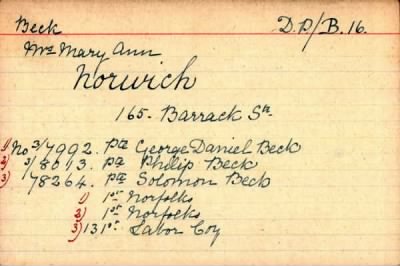 Beck D.P/B.16.
Mrs Mary Ann
Norwich
165. Barrack St.
1) No 3/7992. Pte George Daniel Beck
2) 3/8013. Pte Philip Beck
3) 78264. Pte Solomon Beck
1) 1st Norfolks
2) 1st Norfolks
3) 131st Labor Coy